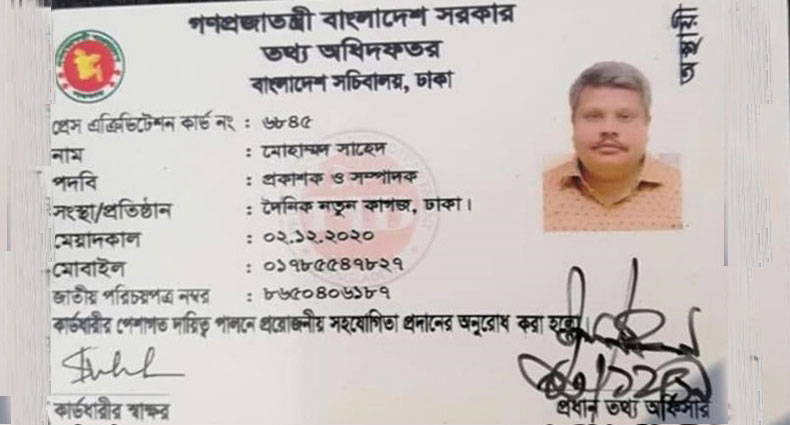 গণপ্রজাতন্ত্রী বাংলাদেশ সরকার
তথ্য অধিদফতর
বাংলাদেশ সচিবালয়, ঢাকা
অস্থায়ী
প্রেস এক্রিডিটেশন কার্ড নং : ৬৮৪৫
নাম : মোহাম্মদ সাহেদ
পদবি : প্রকাশক ও সম্পাদক
সংস্থা/প্রতিষ্ঠান : দৈনিক নতুন কাগজ, ঢাকা।
মেয়াদকাল : ০২.১২.২০২০
মোবাইল : ০১৭৮৫৫৪৭৮২৭
জাতীয় পরিচয়পত্র নম্বর : ৮৬৫০৪০৬১৮৭
কার্ডধারীর পেশাগত দায়িত্ব পালনে প্রয়োজনীয় সহযোগিতা প্রদানের অনুরোধ করা
কার্ডধারীর স্বাক্ষর
প্রধান তথ্য অফিসার